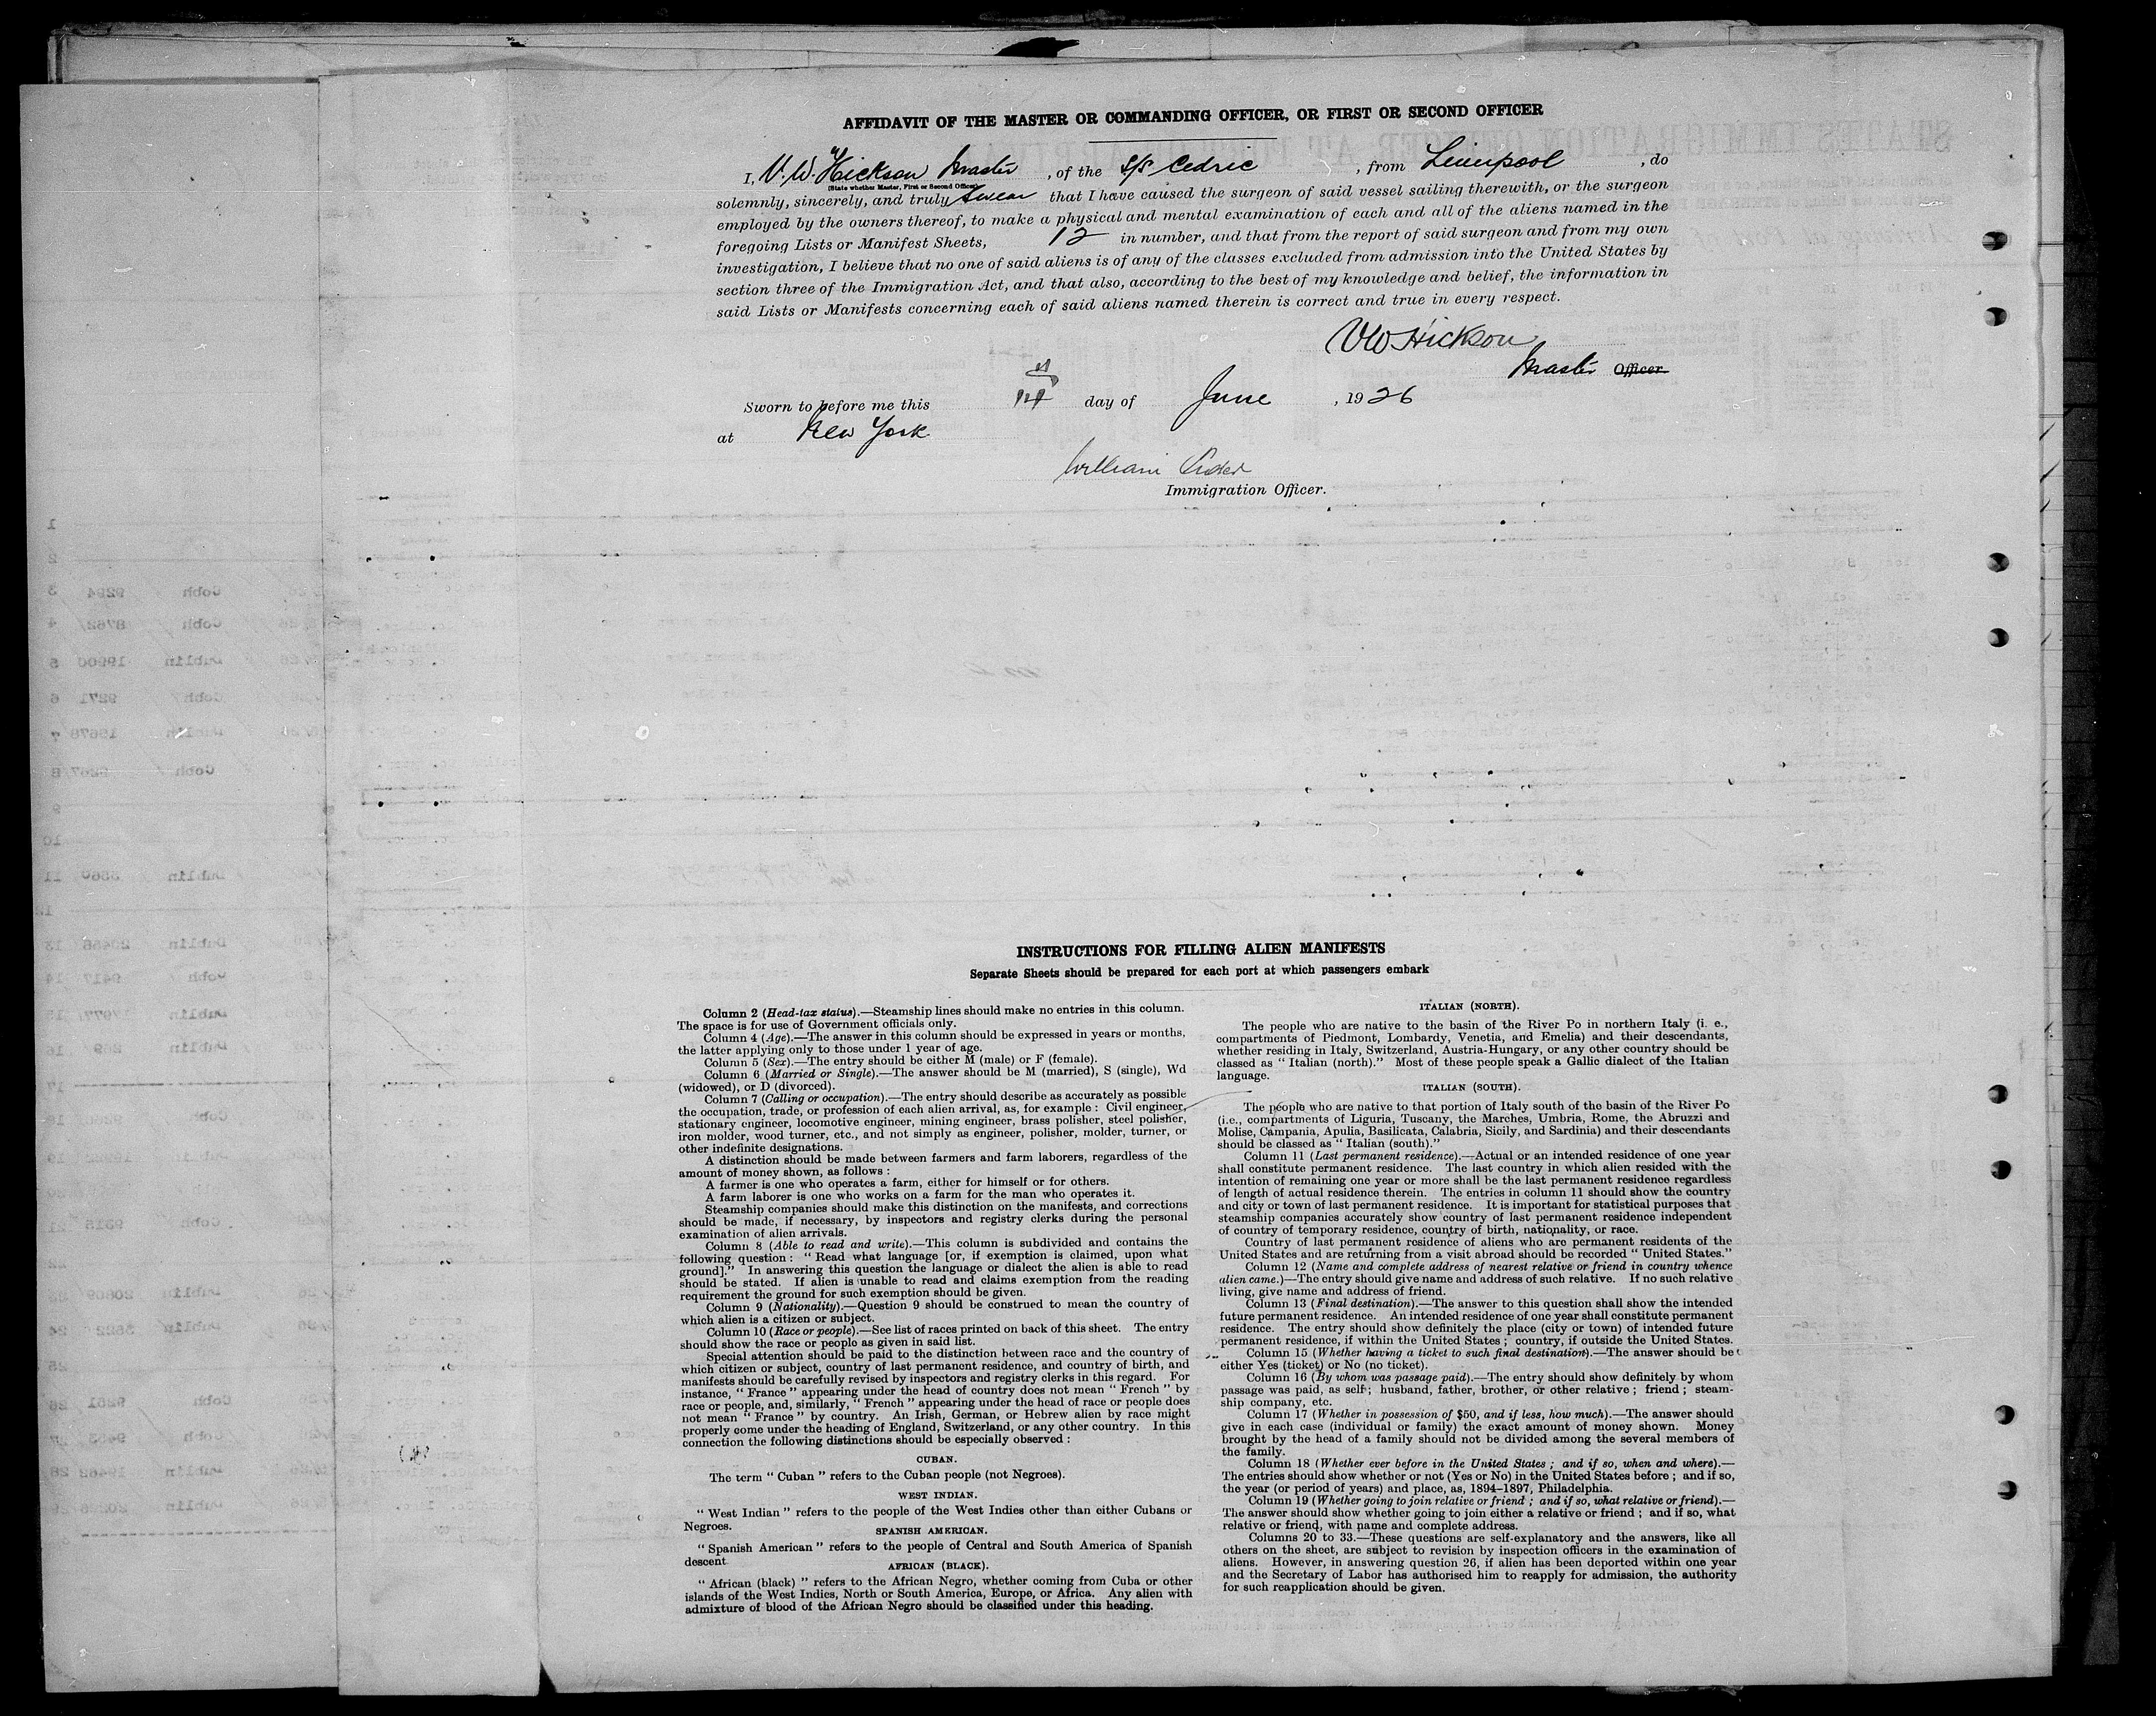 AFFIDAVIT OF THE MASTER OR COMMANDING OFFICER, OR FIRST OR SECOND OFFICER
I, V. W. Hickson Master, of the S/S Cedric, from Liverpool, do
(State whether Master, First or Second Officer)
solemnly, sincerely, and truly swear that I have caused the surgeon of said vessel sailing therewith, or the surgeon
employed by the owners thereof, to make a physical and mental examination of each and all of the aliens named in the
foregoing Lists or Manifest Sheets, 12 in number, and that from the report of said surgeon and from my own
investigation, I believe that no one of said aliens is of any of the classes excluded from admission into the United States by
section three of the Immigration Act, and that also, according to the best of my knowledge and belief, the information in
said Lists or Manifests concerning each of said aliens named therein is correct and true in every respect.
VW Hickson
Master Officer.
Sworn to before me this day of June, 1926
at New York
William
Immigration Officer.
INSTRUCTIONS FOR FILLING ALIEN MANIFESTS
Separate Sheets should be prepared for each port at which passengers embark
Column 2 (Head-tax status).—Steamship lines should make no entries in this column.
The space is for use of Government officials only.
Column 4 (Age).—The answer in this column should be expressed in years or months,
the latter applying only to those under 1 year of age.
Column 5 (Sex).—The entry should be either M (male) or F (female).
Column 6 (Married or Single).—The answer should be M (married), S (single), Wd
(widowed), or D (divorced).
Column 7 (Calling or occupation).—The entry should describe as accurately as possible
the occupation, trade, or profession of each alien arrival, as, for example : Civil engineer,
stationary engineer, locomotive engineer, mining engineer, brass polisher, steel polisher,
iron molder, wood turner, etc., and not simply as engineer, polisher, molder, turner, or
other indefinite designations.
A distinction should be made between farmers and farm laborers, regardless of the
amount of money shown, as follows :
A farmer is one who operates a farm, either for himself or for others.
A farm laborer is one who works on a farm for the man who operates it.
Steamship companies should make this distinction on the manifests, and corrections
should be made, if necessary, by inspectors and registry clerks during the personal
examination of alien arrivals.
Column 8 (Able to read and write).—This column is subdivided and contains the
following question : “ Read what language [or, if exemption is claimed, upon what
ground].” In answering this question the language or dialect the alien is able to read
should be stated. If alien is unable to read and claims exemption from the reading
requirement the ground for such exemption should be given.
Column 9 (Nationality).—Question 9 should be construed to mean the country of
which alien is a citizen or subject.
Column 10 (Race or people).—See list of races printed on back of this sheet. The entry
should show the race or people as given in said list.
Special attention should be paid to the distinction between race and the country of
which citizen or subject, country of last permanent residence, and country of birth, and
manifests should be carefully revised by inspectors and registry clerks in this regard. For
instance, “ France ” appearing under the head of country does not mean “ French ” by
race or people, and, similarly, “ French ” appearing under the head of race or people does
not mean “ France ” by country. An Irish, German, or Hebrew alien by race might
properly come under the heading of England, Switzerland, or any other country. In this
connection the following distinctions should be especially observed :
CUBAN.
The term “ Cuban ” refers to the Cuban people (not Negroes).
WEST INDIAN.
“ West Indian ” refers to the people of the West Indies other than either Cubans or
Negroes.
SPANISH AMERICAN.
“ Spanish American ” refers to the people of Central and South America of Spanish
descent
AFRICAN (BLACK).
“ African (black) ” refers to the African Negro, whether coming from Cuba or other
islands of the West Indies, North or South America, Europe, or Africa. Any alien with
admixture of blood of the African Negro should be classified under this heading.
ITALIAN (NORTH).
The people who are native to the basin of the River Po in northern Italy (i. e.,
compartments of Piedmont, Lombardy, Venetia, and Emelia) and their descendants,
whether residing in Italy, Switzerland, Austria-Hungary, or any other country should be
classed as “ Italian (north).” Most of these people speak a Gallic dialect of the Italian
language.
ITALIAN (SOUTH).
The people who are native to that portion of Italy south of the basin of the River Po
(i.e., compartments of Liguria, Tuscany, the Marches, Umbria, Rome, the Abruzzi and
Molise, Campania, Apulia, Basilicata, Calabria, Sicily, and Sardinia) and their descendants
should be classed as “ Italian (south).”
Column 11 (Last permanent residence).—Actual or an intended residence of one year
shall constitute permanent residence. The last country in which alien resided with the
intention of remaining one year or more shall be the last permanent residence regardless
of length of actual residence therein. The entries in column 11 should show the country
and city or town of last permanent residence. It is important for statistical purposes that
steamship companies accurately show country of last permanent residence independent
of country of temporary residence, country of birth, nationality, or race.
Country of last permanent residence of aliens who are permanent residents of the
United States and are returning from a visit abroad should be recorded “ United States.”
Column 12 (Name and complete address of nearest relative or friend in country whence
alien came.)—The entry should give name and address of such relative. If no such relative
living, give name and address of friend.
Column 13 (Final destination).—The answer to this question shall show the intended
future permanent residence. An intended residence of one year shall constitute permanent
residence. The entry should show definitely the place (city or town) of intended future
permanent residence, if within the United States ; country, if outside the United States.
Column 15 (Whether having a ticket to such final destination).—The answer should be
either Yes (ticket) or No (no ticket).
Column 16 (By whom was passage paid).—The entry should show definitely by whom
passage was paid, as self ; husband, father, brother, or other relative ; friend ; steam-
ship company, etc.
Column 17 (Whether in possession of $50, and if less, how much).—The answer should
give in each case (individual or family) the exact amount of money shown. Money
brought by the head of a family should not be divided among the several members of
the family.
Column 18 (Whether ever before in the United States ; and if so, when and where).—
The entries should show whether or not (Yes or No) in the United States before ; and if so,
the year (or period of years) and place, as, 1894–1897, Philadelphia.
Column 19 (Whether going to join relative or friend ; and if so, what relative or friend).—
The answer should show whether going to join either a relative or friend ; and if so, what
relative or friend, with name and complete address.
Columns 20 to 33.—These questions are self-explanatory and the answers, like all
others on the sheet, are subject to revision by inspection officers in the examination of
aliens. However, in answering question 26, if alien has been deported within one year
and the Secretary of Labor has authorised him to reapply for admission, the authority
for such reapplication should be given.